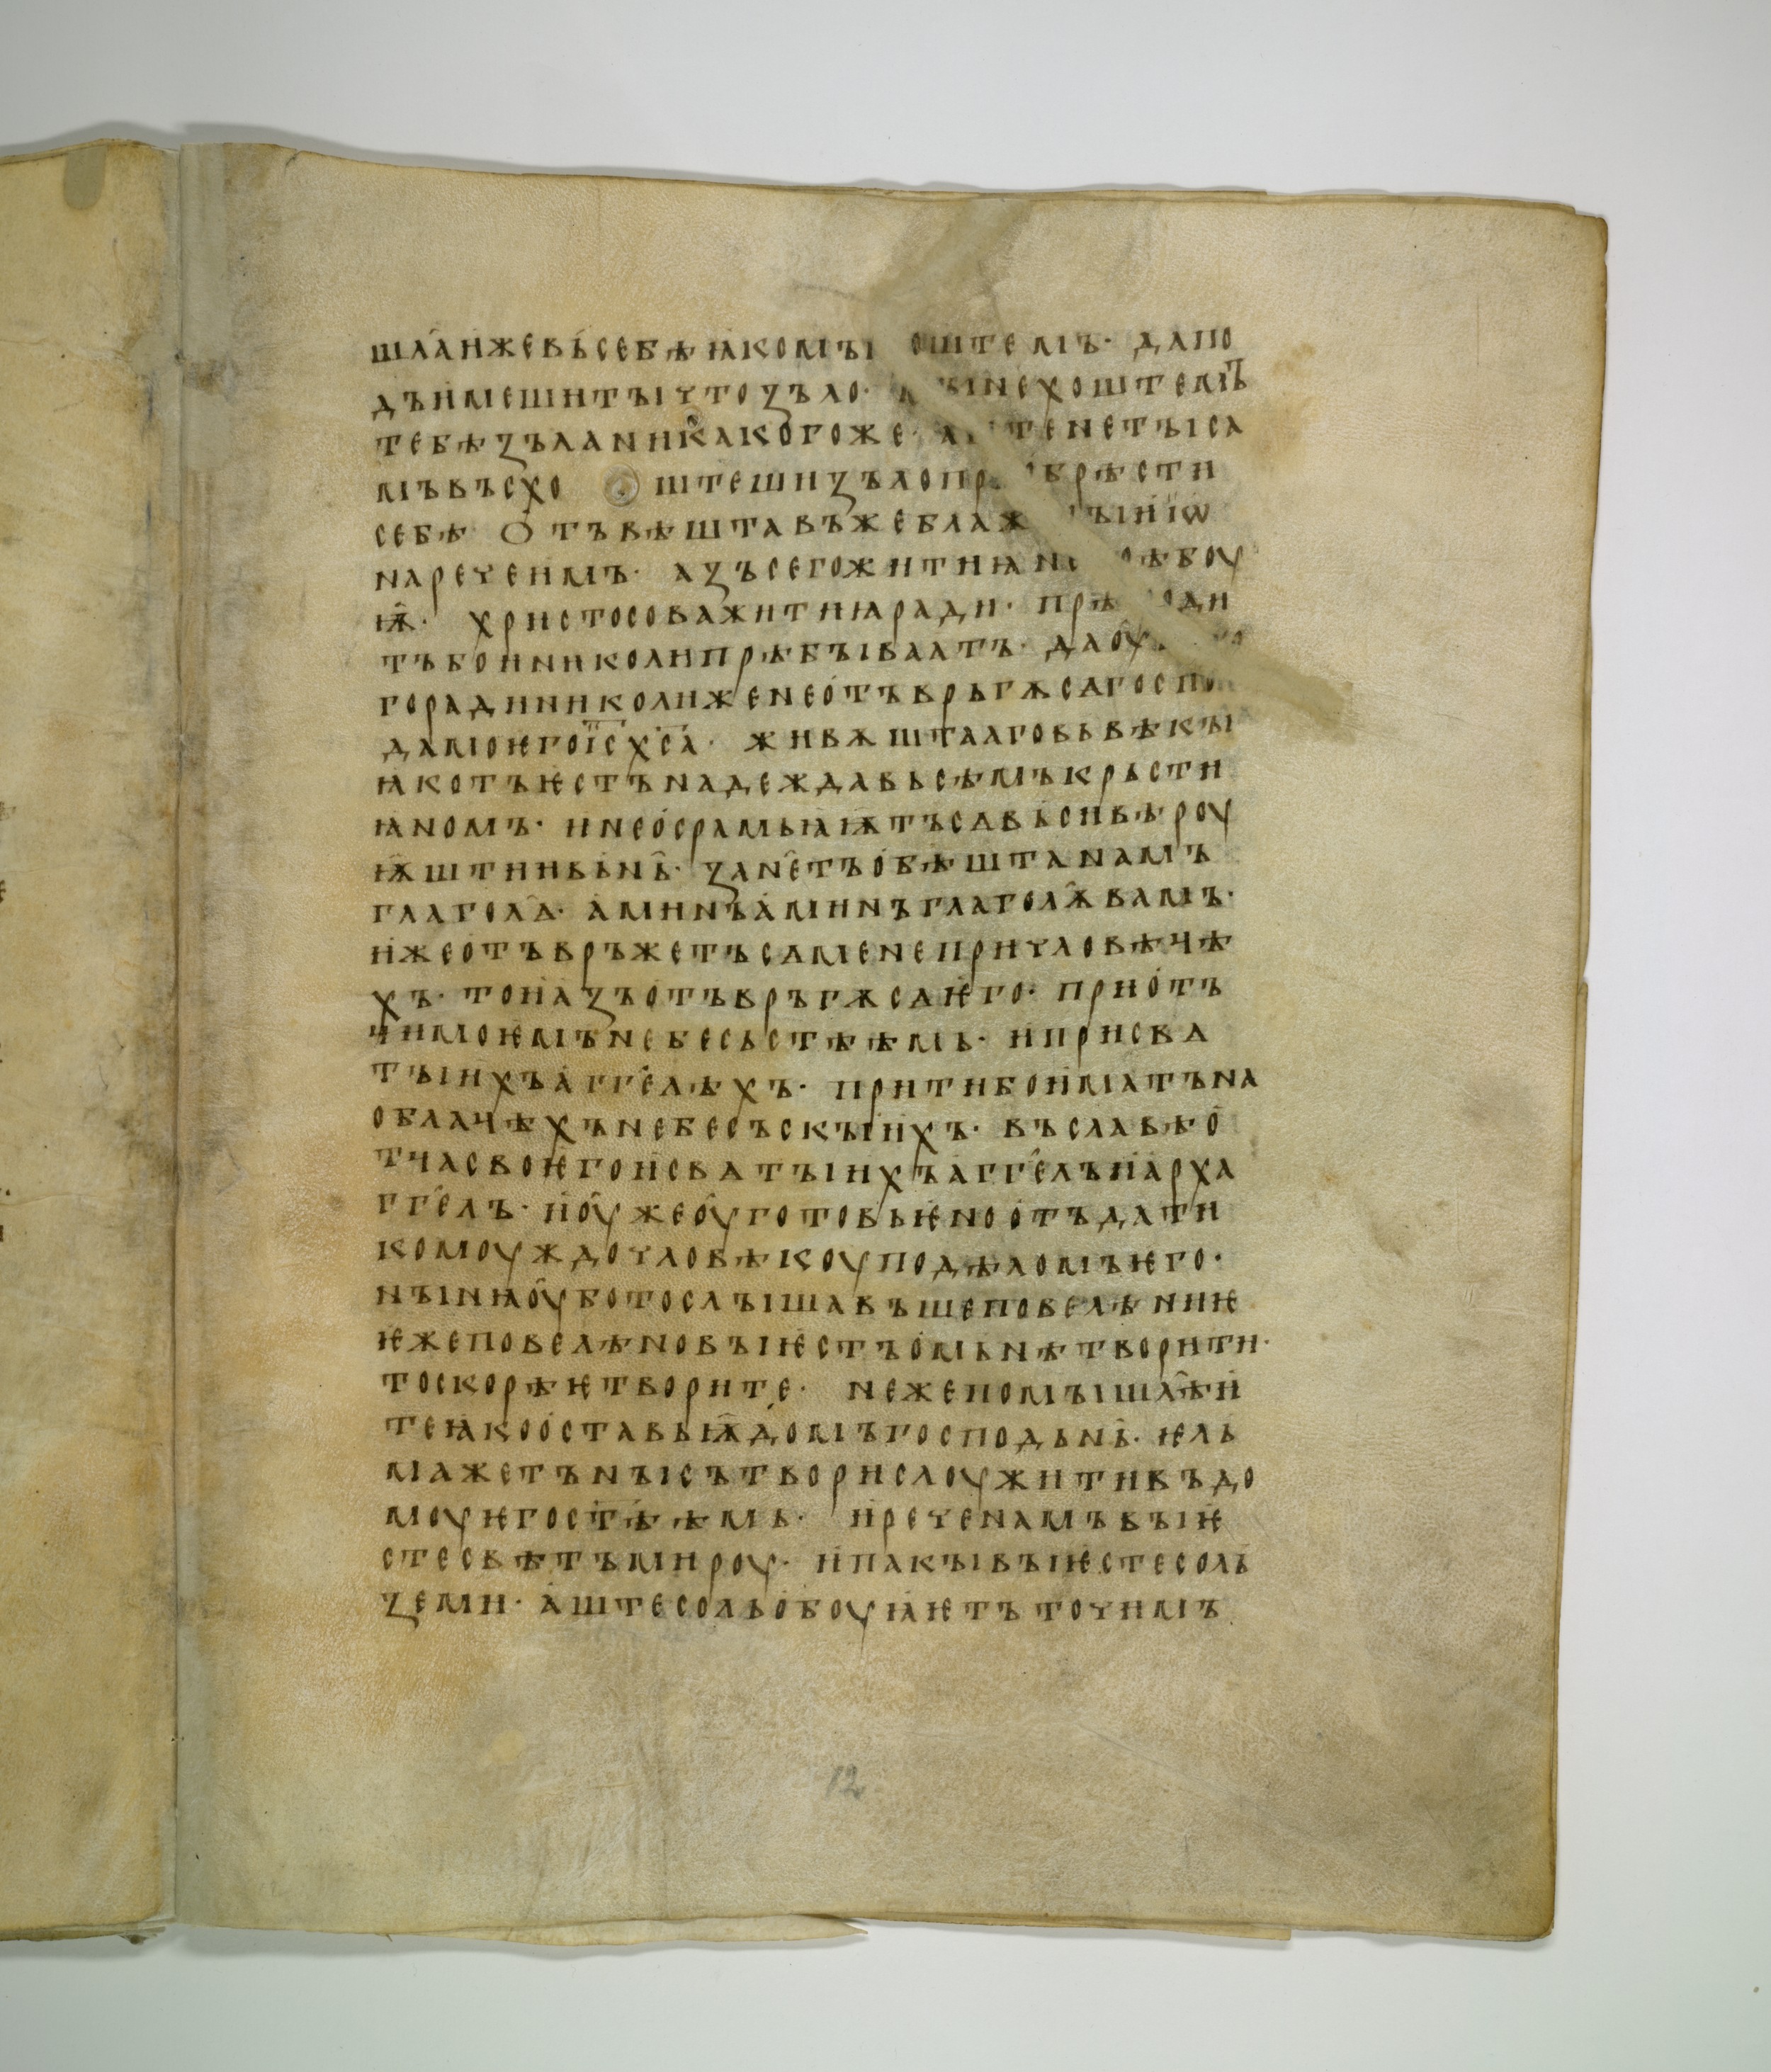 шѧ́ѧ иже вь себѣ ꙗко мꙑ оштемъ· да по
дъимеши тꙑ что зъло· не хоштемъ
тебѣ зъла никакогоже· не тꙑ са
мъ въсхоштеши зъло брѣсти
себѣ отъвѣштавъ же иѡ
на реченмъ· азъ сего житиꙗ боу
ѭ· христосова житиꙗ ради·
тъ бо и николи прѣбꙑваѧтъ·
го ради николиже не отъврьгѫ сѧ
да моѥго і҃с х҃са· живѫштааго вь вѣкꙑ
ꙗко тъ ѥстъ надежда вьсѣмъ крьсти
ꙗномъ· и не осрамьꙗѭтъ сѧ вьси вѣроу
ѭштии вь нь· зане тъ обѣшта намъ
глаголѧ· аминъ аминъ глаголѭ вамъ·
иже отъвръжетъ сѧ мене при чловѣцѣ
хъ· то и азъ отъвръгѫ сѧ ѥго· при отъ
ци моѥмъ небесьстѣѣмь· и при свѧ
тꙑихъ аггелѣхъ· прити бо иматъ на
облацѣхъ небесъскꙑихъ· въ славѣ о
тца своѥго и свѧтꙑихъ аггелъ и арха
ггелъ· и оуже оуготовьѥно отъдати
комоуждо чловѣкоу по дѣломъ ѥго·
нꙑнꙗ оубо то слꙑшавъше повелѣниѥ
ѥже повелѣно вꙑ ѥстъ о мьнѣ творити·
то скорѣѥ творите· не же помꙑшлꙗи
те ꙗко оставьѭ домъ господьнь· ѥль
ма же тъ нꙑ сътвори слоужити въ до
моу ѥго стѣѣмь· и рече намъ вꙑ ѥ
сте свѣтъ мироу· и пакꙑ вꙑ ѥсте соль
земи· аште соль обоуꙗѥтъ то чимъ
12